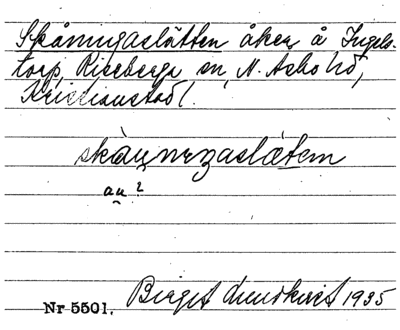 Skåningaslätten åker å Ingels-
torp, Riseberga sn, N. Åsbo hd,
Kristianstad l.
skàu̯nɪŋaslætəm
au̯?
Nr 5501. Birgit Lundkvist 1935